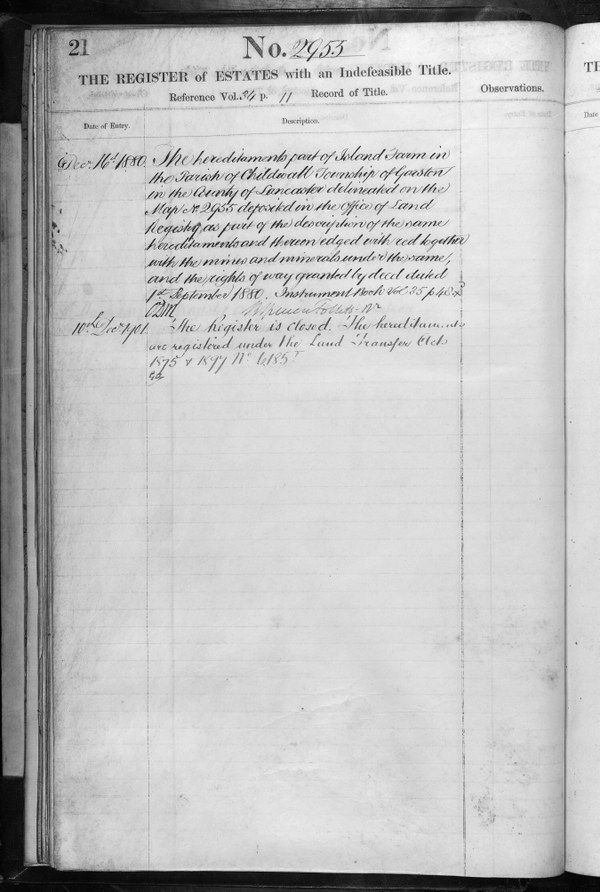 21
No. 2955
THE REGISTER of ESTATES with an Indefeasible Title.
Reference Vol. 34 p. 11 Record of Title.
Observations.
Date of Entry.
Description.
Decr. 16th 1880. The hereditaments part of Island Farm in
the Parish of Childwall Township of Garston
in the County of Lancaster delineated on the
Map No. 2955 deposited in the Office of Land
Registry, as part of the description of the same
hereditaments and thereon edged with red together
with the mines and minerals under the same,
and the rights of way granted by deed dated
1st September 1880. Instrument Book Vol 35 p 48
10th Decr 1901. The Register is closed. The hereditaments
are registered under the Land Transfer Acts
1875 & 1897 No
TH
Date